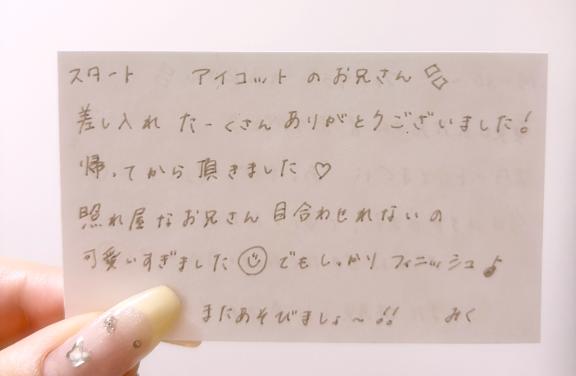 スタート アイコットのお兄さん
差し入れ たーくさんありがとうございました!
帰ってから頂きました♡
照れ屋なお兄さん 目合わせれないの
可愛いすぎました☺でもしっかりフィニッシュ♪
またあそびましょ〜!! みく